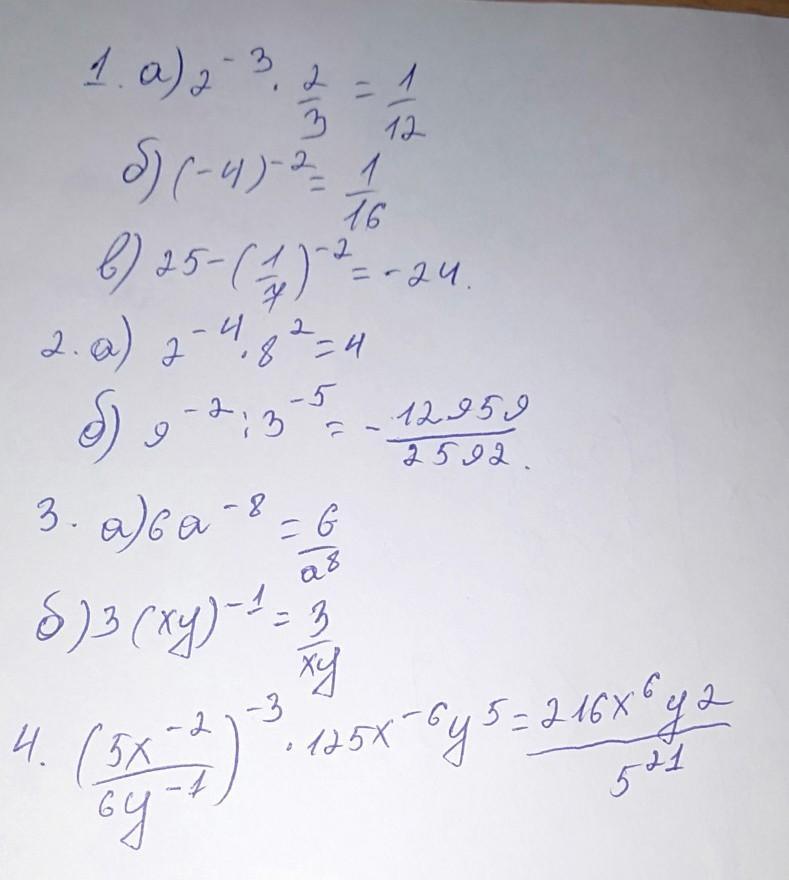 1. а) 2^-3 · 2/3 = 1/12
б) (-4)^-2 = 1/16
в) 25 - (1/7)^-2 = -24.
2. а) 2^-4 · 8^2 = 4
б) 9^-2 : 3^-5 = - 12959/2592.
3. а) 6a^-8 = 6/a^8
б) 3(xy)^-1 = 3/xy
4. (5x^-2/6y^-1)^-3 · 125x^-6 y^5 = 216x^6 y2/5^21